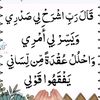 قَالَ رَبِّ اشْرَحْ لِي صَدْرِي
وَيَسِّرْ لِي أَمْرِي
وَاحْلُلْ عُقْدَةً مِّن لِّسَانِي
يَفْقَهُوا قَوْلِي